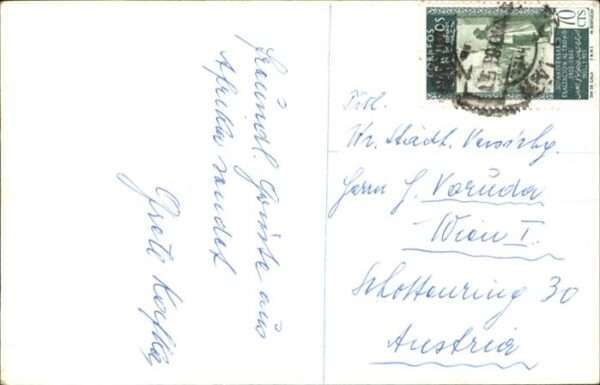 Freundl. Grüsse aus
Afrika sendet
Grete
Titl.
Wr. Städt. Versichg.
Herrn J. Voruda
Wien I.
Schottenring 30
Austria
CORREOS
70
CTS